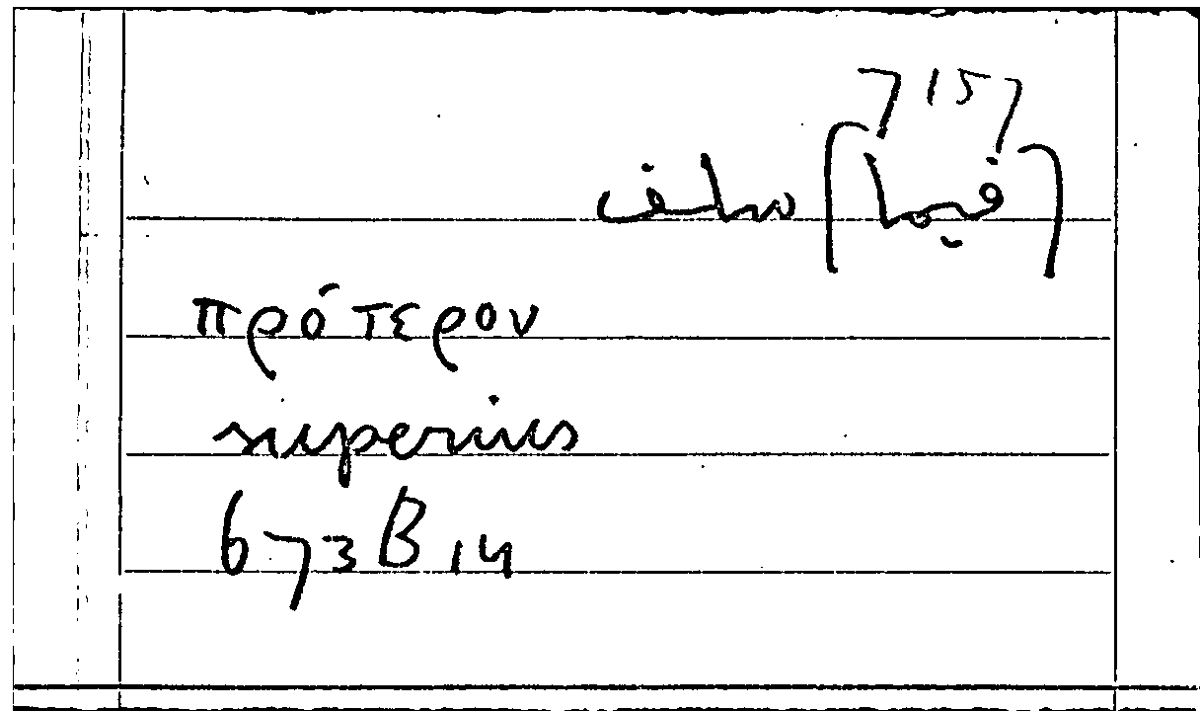 7157
(فيما) سلف
πρότερον
superius
673 B 14